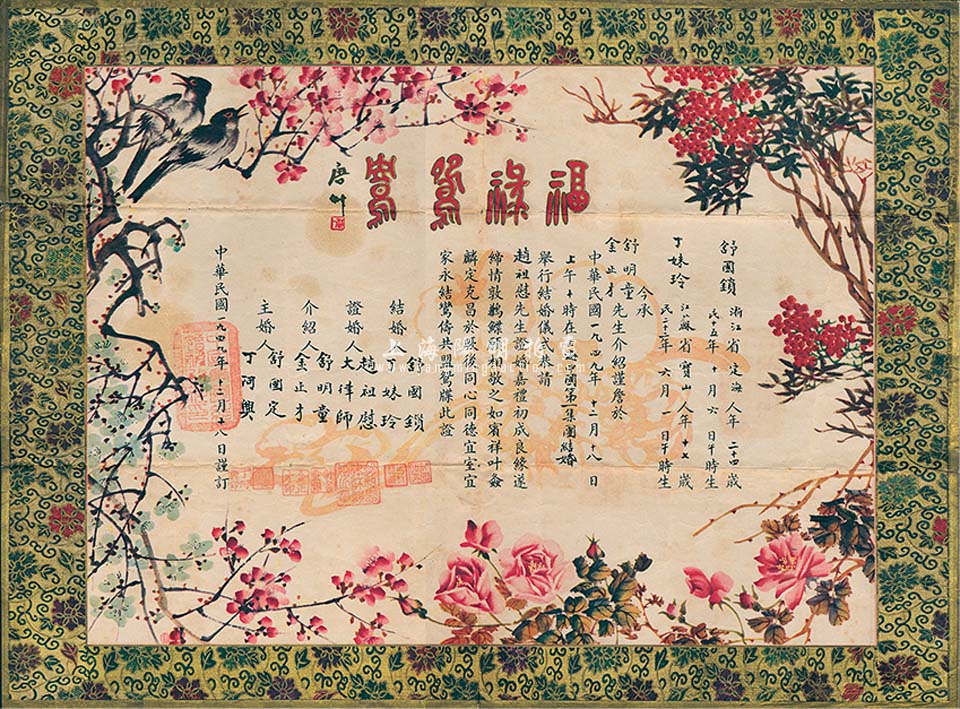 福祿鴛鴦
唐竹
舒國鎖 浙江省定海人年二十四歲
民十五年十月六日午時生
丁妹玲 江蘇省寶山人年十七歲
民二十二年六月一日午時生
今承
舒明童
金止才 先生介紹謹詹於
中華民國一九四九年十二月十八日
上午十時在上海中國第一集團結婚
舉行結婚儀式恭請
趙祖慰先生證婚嘉禮初成良緣遂
締情敦鶼鰈願相敬之如賓祥叶螽
麟定克昌於厥後同心同德宜室宜
家永結鸞儔共盟鴛牒此證
結婚人 舒國鎖
丁妹玲
證婚人 趙祖慰
大律師
介紹人 舒明童
金止才
主婚人 舒國定
丁阿興
中華民國一九四九年十二月十八日謹訂